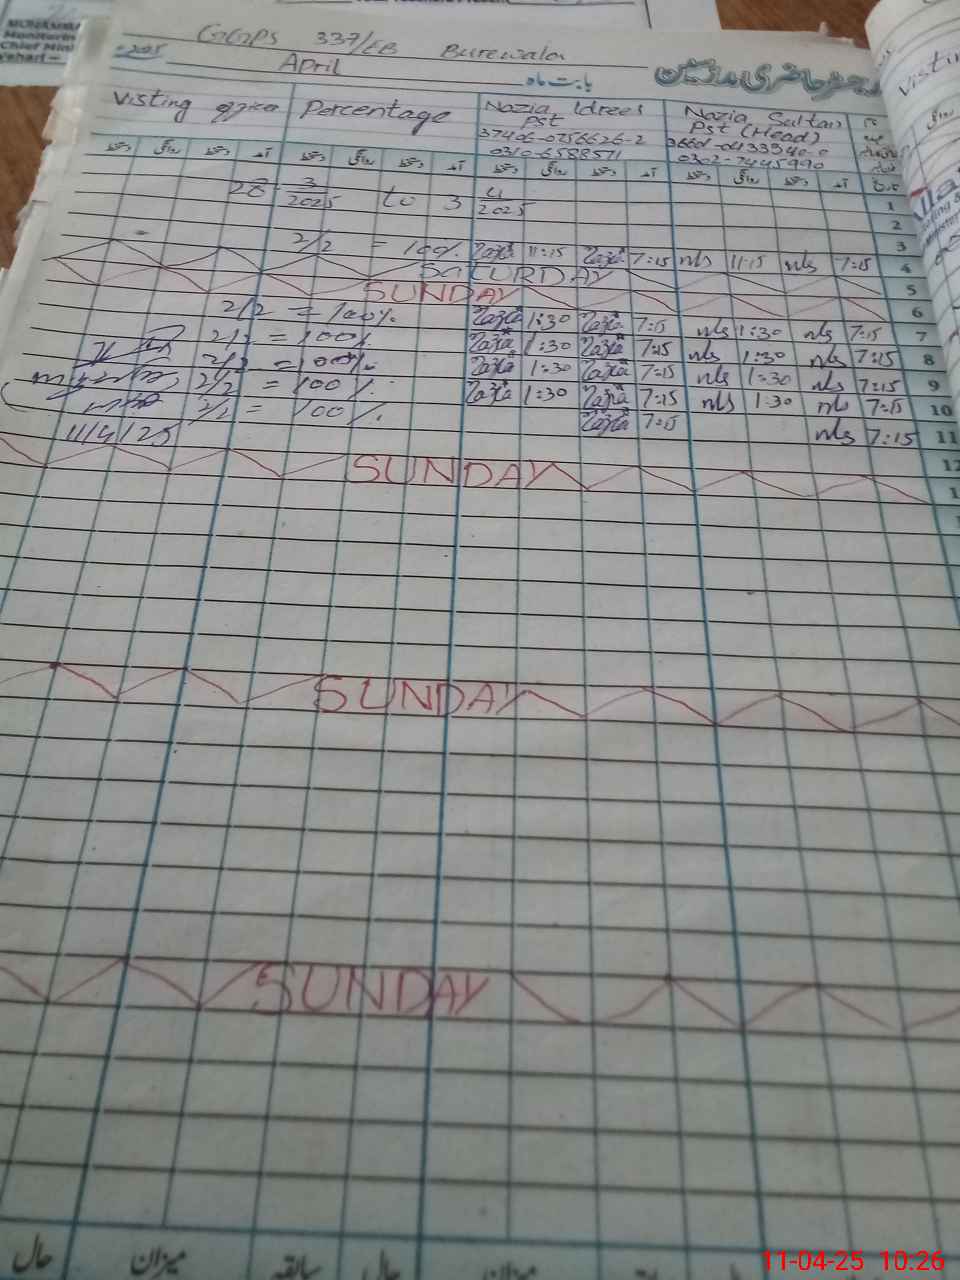 GGPS 337/EB Burewala
2025 April بابت ماہ رجسٹر حاضری مدرسین
Visting officer Percentage Nazia Idrees Nazia Sultan
Pst Pst (Head)
37406-0756626-2
0310-6588571 0302-7445990
دستخط روانگی دستخط آمد دستخط روانگی دستخط آمد دستخط روانگی دستخط آمد دستخط روانگی دستخط آمد تاریخ
28 3/2025 to 3 4/2025 1
2
3
2/2 = 100% Nazia 11:15 Nazia 7:15 nls 11:15 nls 7:15 4
SATURDAY 5
SUNDAY 6
2/2 = 100% Nazia 1:30 Nazia 7:15 nls 1:30 nls 7:15 7
2/2 = 100% Nazia 1:30 Nazia 7:15 nls 1:30 nls 7:15 8
2/2 = 100% Nazia 1:30 Nazia 7:15 nls 1:30 nls 7:15 9
2/2 = 100% Nazia 1:30 Nazia 7:15 nls 1:30 nls 7:15 10
2/2 = 100% Nazia 7:15 nls 7:15 11
11/4/25
12
SUNDAY
SUNDAY
SUNDAY
حال میزان سابقہ حال میزان
11-04-25 10:26